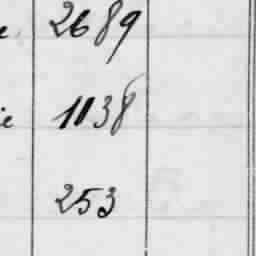 e 2689
ie 1138
253